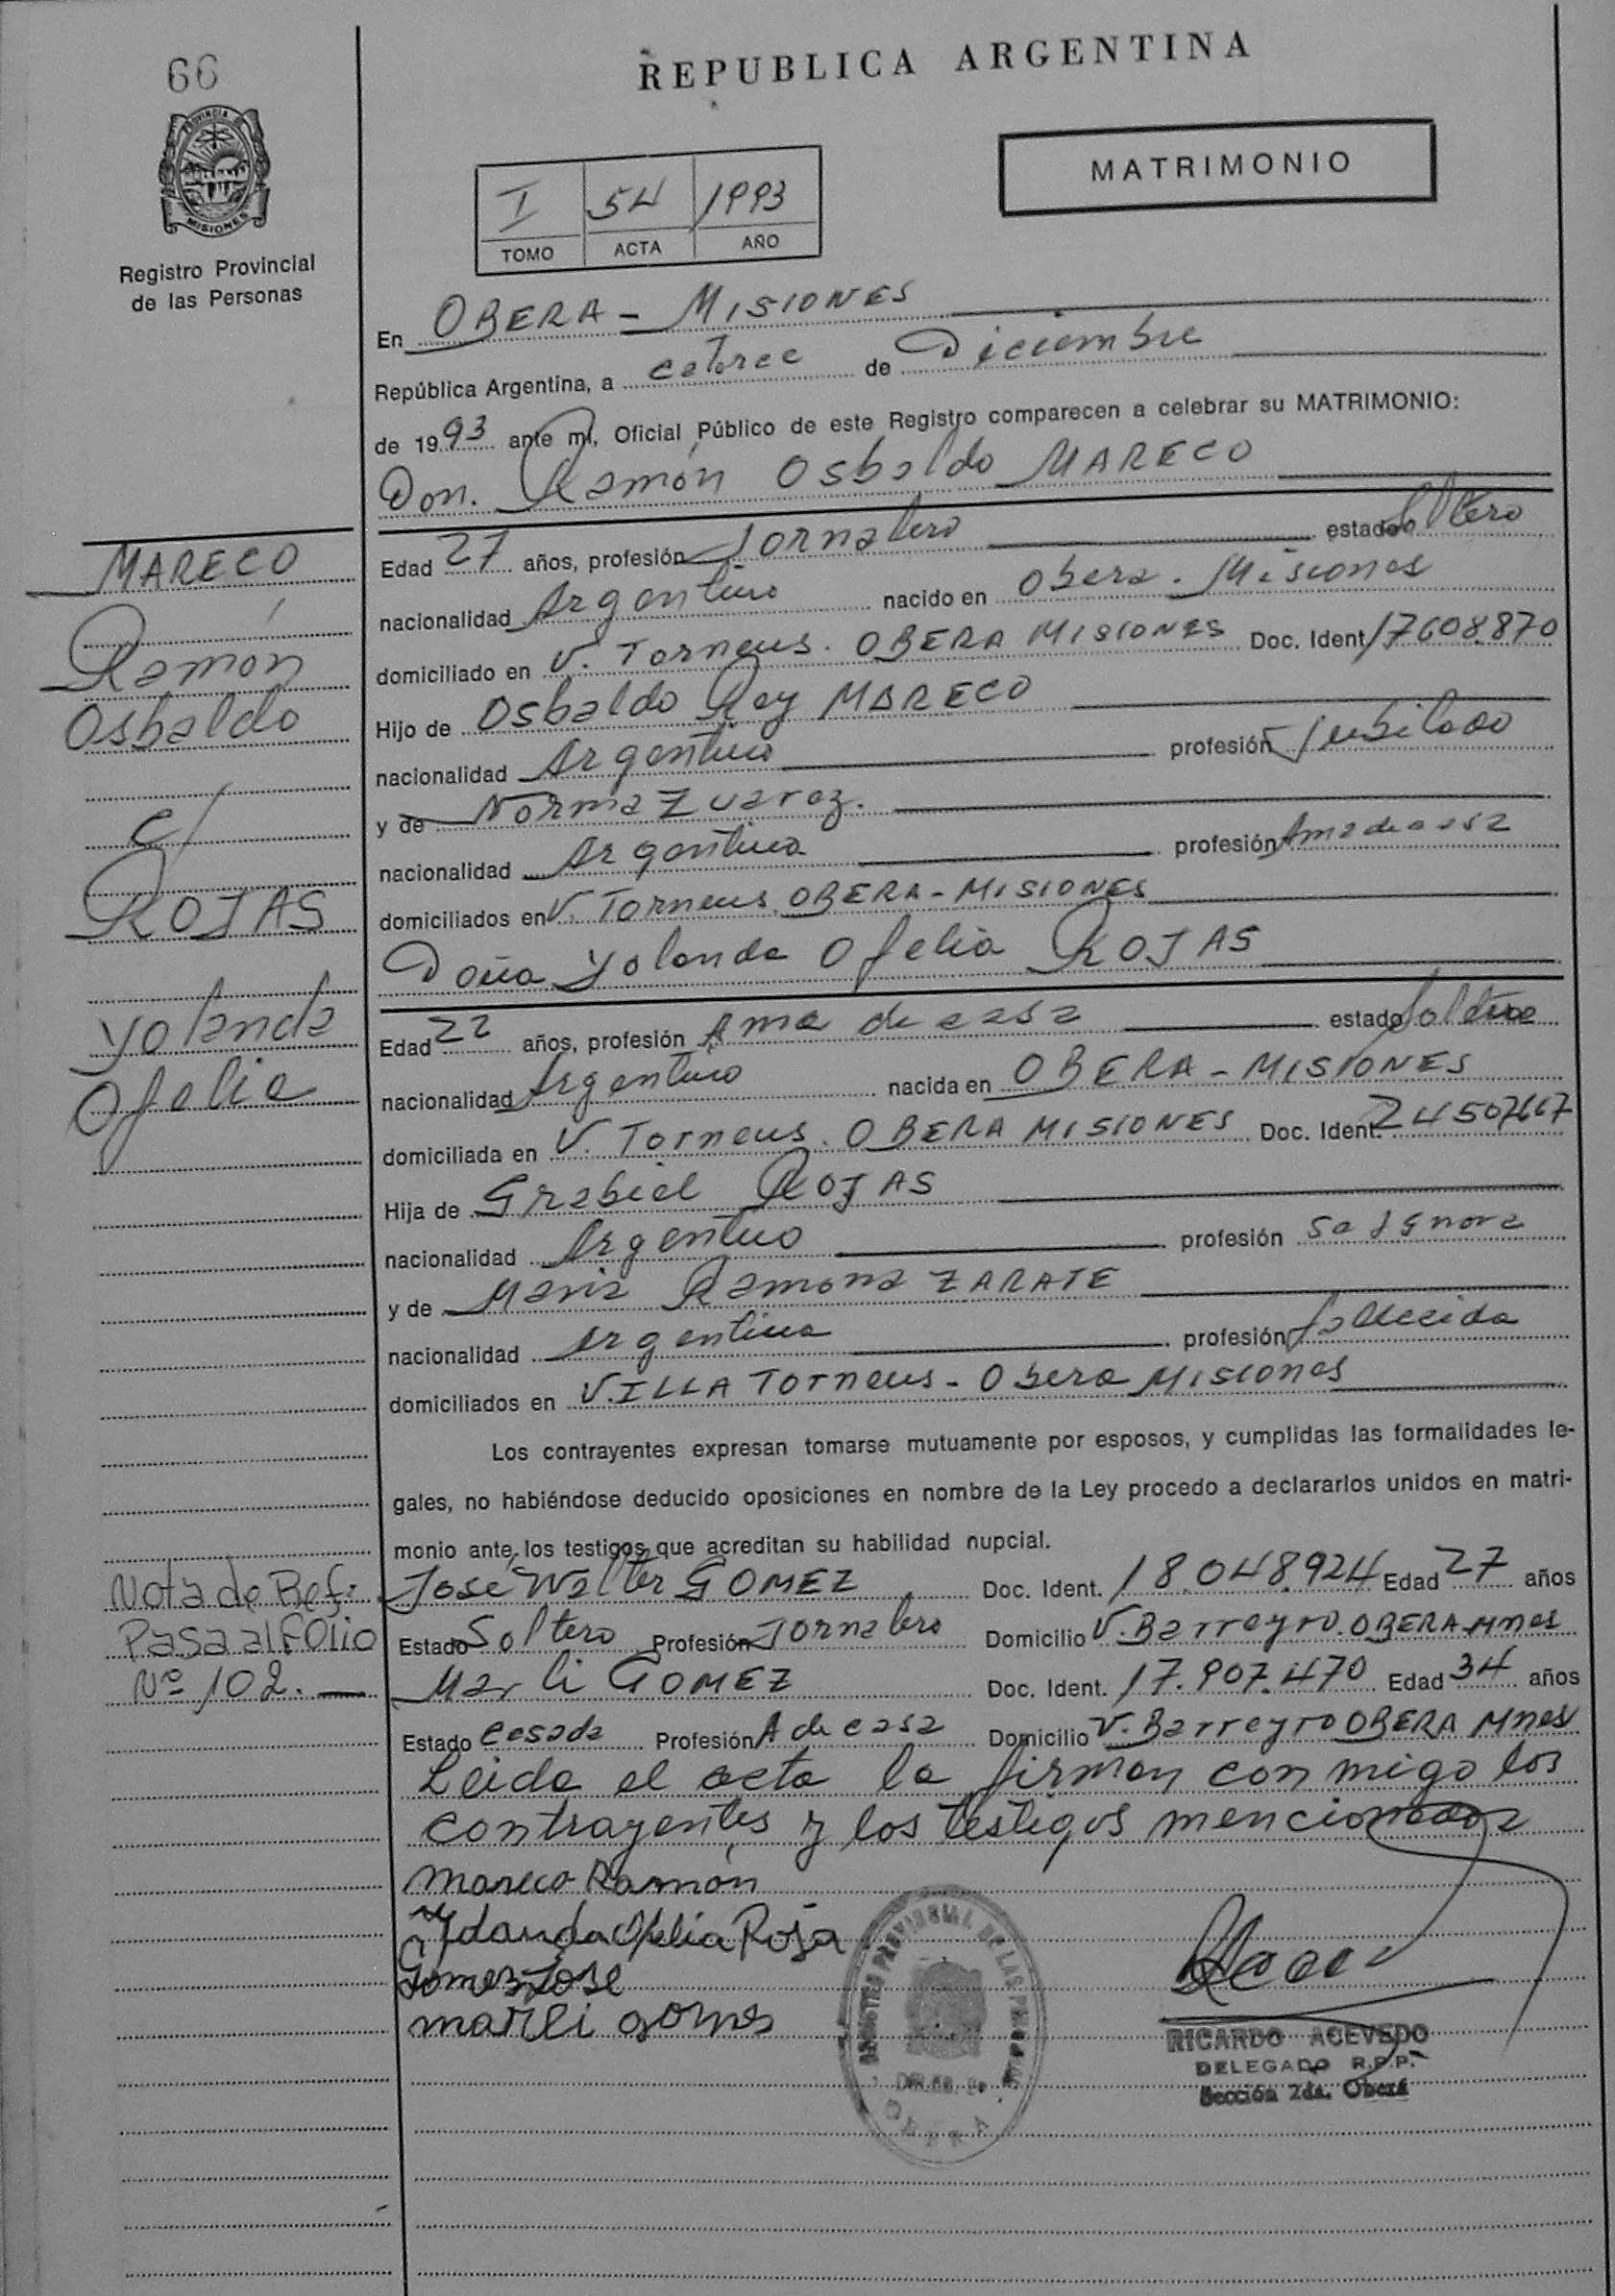 66
REPUBLICA ARGENTINA
PROVINCIA DE
MISIONES
Registro Provincial
de las Personas
MATRIMONIO
I 54 1993
TOMO ACTA AÑO
En OBERA - MISIONES
República Argentina, a catorce de Diciembre
de 1993 ante mí, Oficial Público de este Registro comparecen a celebrar su MATRIMONIO:
Don. Ramón Osbaldo MARECO
Edad 27 años, profesión Jornalero estado Soltero
nacionalidad Argentino nacido en Obera - Misiones
domiciliado en V. Torneus. OBERA MISIONES Doc. Ident 17608.870
Hijo de Osbaldo Rey MARECO
nacionalidad Argentino profesión Jubilado
y de Norma Zuarez.
nacionalidad Argentina profesión Ama de casa
domiciliados en V. Torneus OBERA - MISIONES
Doña Yolanda Ofelia ROJAS
Edad 22 años, profesión Ama de casa estado Soltera
nacionalidad Argentina nacida en OBERA - MISIONES
domiciliada en V. Torneus. OBERA MISIONES Doc. Ident. 24507667
Hija de Grabiel ROJAS
nacionalidad Argentino profesión se ignora
y de Maria Ramona ZARATE
nacionalidad Argentina profesión fallecida
domiciliados en VILLA Torneus - Obera Misiones
Los contrayentes expresan tomarse mutuamente por esposos, y cumplidas las formalidades le-
gales, no habiéndose deducido oposiciones en nombre de la Ley procedo a declararlos unidos en matri-
monio ante los testigos que acreditan su habilidad nupcial.
José Walter GOMEZ Doc. Ident. 18.048.924 Edad 27 años
Estado Soltero Profesión Jornalero Domicilio V. Barreyro. OBERA Mnes
Marli GOMEZ Doc. Ident. 17.907.470 Edad 34 años
Estado Casada Profesión A de casa Domicilio V. Barreyro OBERA Mnes
Leida el acta la firman con migo los
contrayentes y los testigos mencionados
Mareco Ramón
Yolanda Ofelia Roja
Gomez Jose
marli gomes
RICARDO ACEVEDO
DELEGADO R.P.P.
Sección 2da. Oberá
OBERA
MARECO
Ramón
Osbaldo
c/
ROJAS
Yolanda
Ofelia
Nota de Ref:
Pasa al Folio
Nº 102.